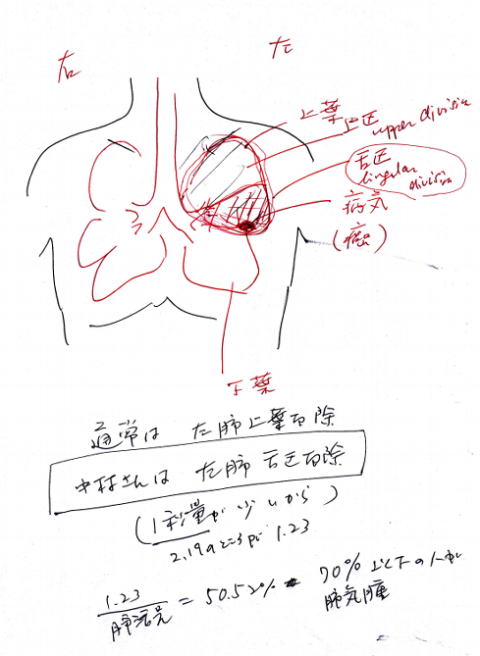 右
左
上葉
上区 upper division
舌区
lingular
division
病気
(癌)
下葉
通常は 左肺上葉切除
中村さんは 左肺 舌区切除
(1秒量が少いから)
2.19のところが 1.23
1.23
肺活量
= 50.52%
70%以下の人が
肺気腫